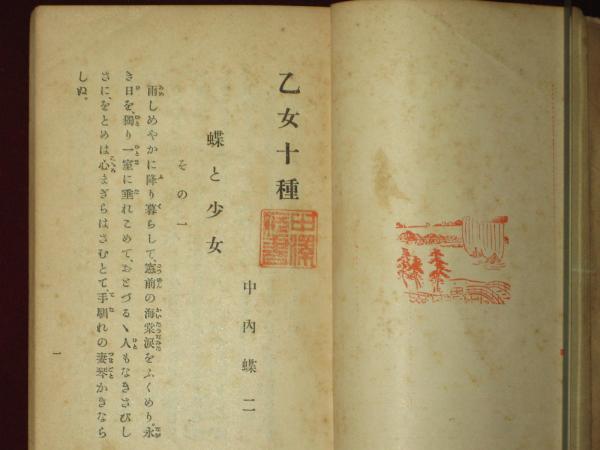 乙女十種
中內蝶二
蝶と少女
その一
雨しめやかに降り暮らして、窓前の海棠淚をふくめり。永
き日を、獨り一室に垂れこめて、おとづるゝ人もなきさびし
さに、をとめは心まぎらはさむとて、手馴れの妻琴かきなら
しぬ。
一